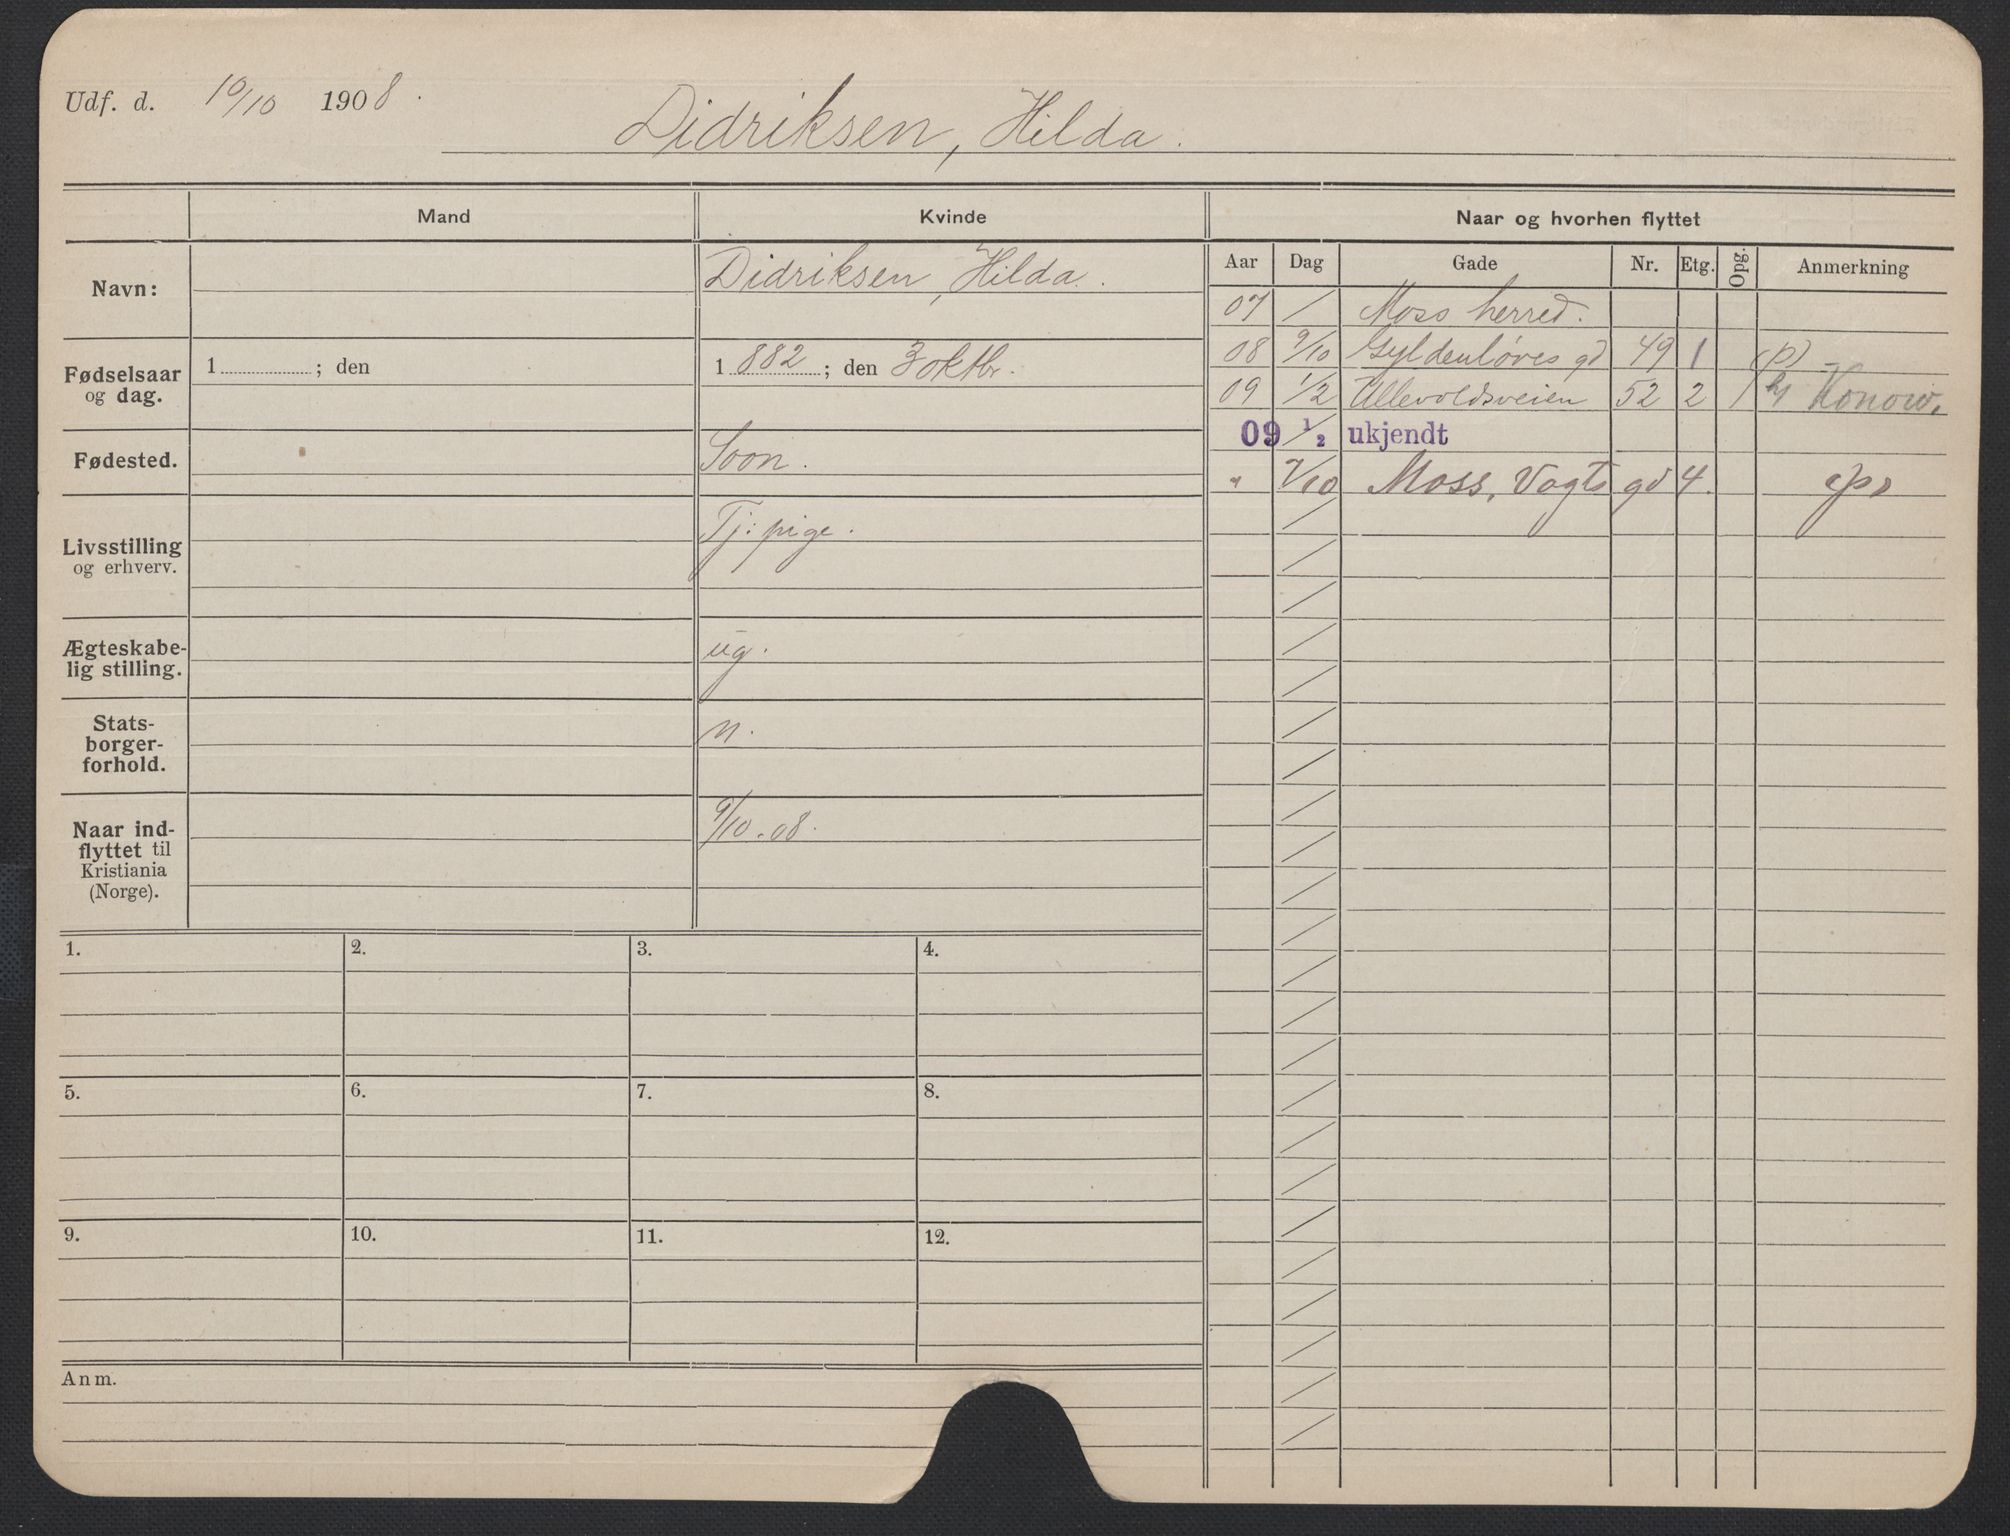 Udf. d. 10/10 1908.
Didriksen, Hilda.
Mand Kvinde Naar og hvorhen flyttet
Aar Dag Gade Nr. Etg. Opg. Anmerkning
Navn: Didriksen, Hilda.
Fødselsaar og dag. 1 ; den 1882 ; den 3 oktbr.
Fødested. Soon.
Livsstilling og erhverv. Tj: pige.
Ægteskabe-
lig stilling. ug.
Stats-
borger-
forhold. n.
Naar ind-
flyttet til
Kristiania
(Norge). 9/10.08.
07 / Moss herred.
08 9/10 Gyldenløves gd 49 1 (p)
09 1/2 Ullevoldsveien 52 2 / Konow.
09 1/2 ukjendt
" 7/10 Moss, Vogts gd 4.
1. 2. 3. 4.
5. 6. 7. 8.
9. 10. 11. 12.
Anm.